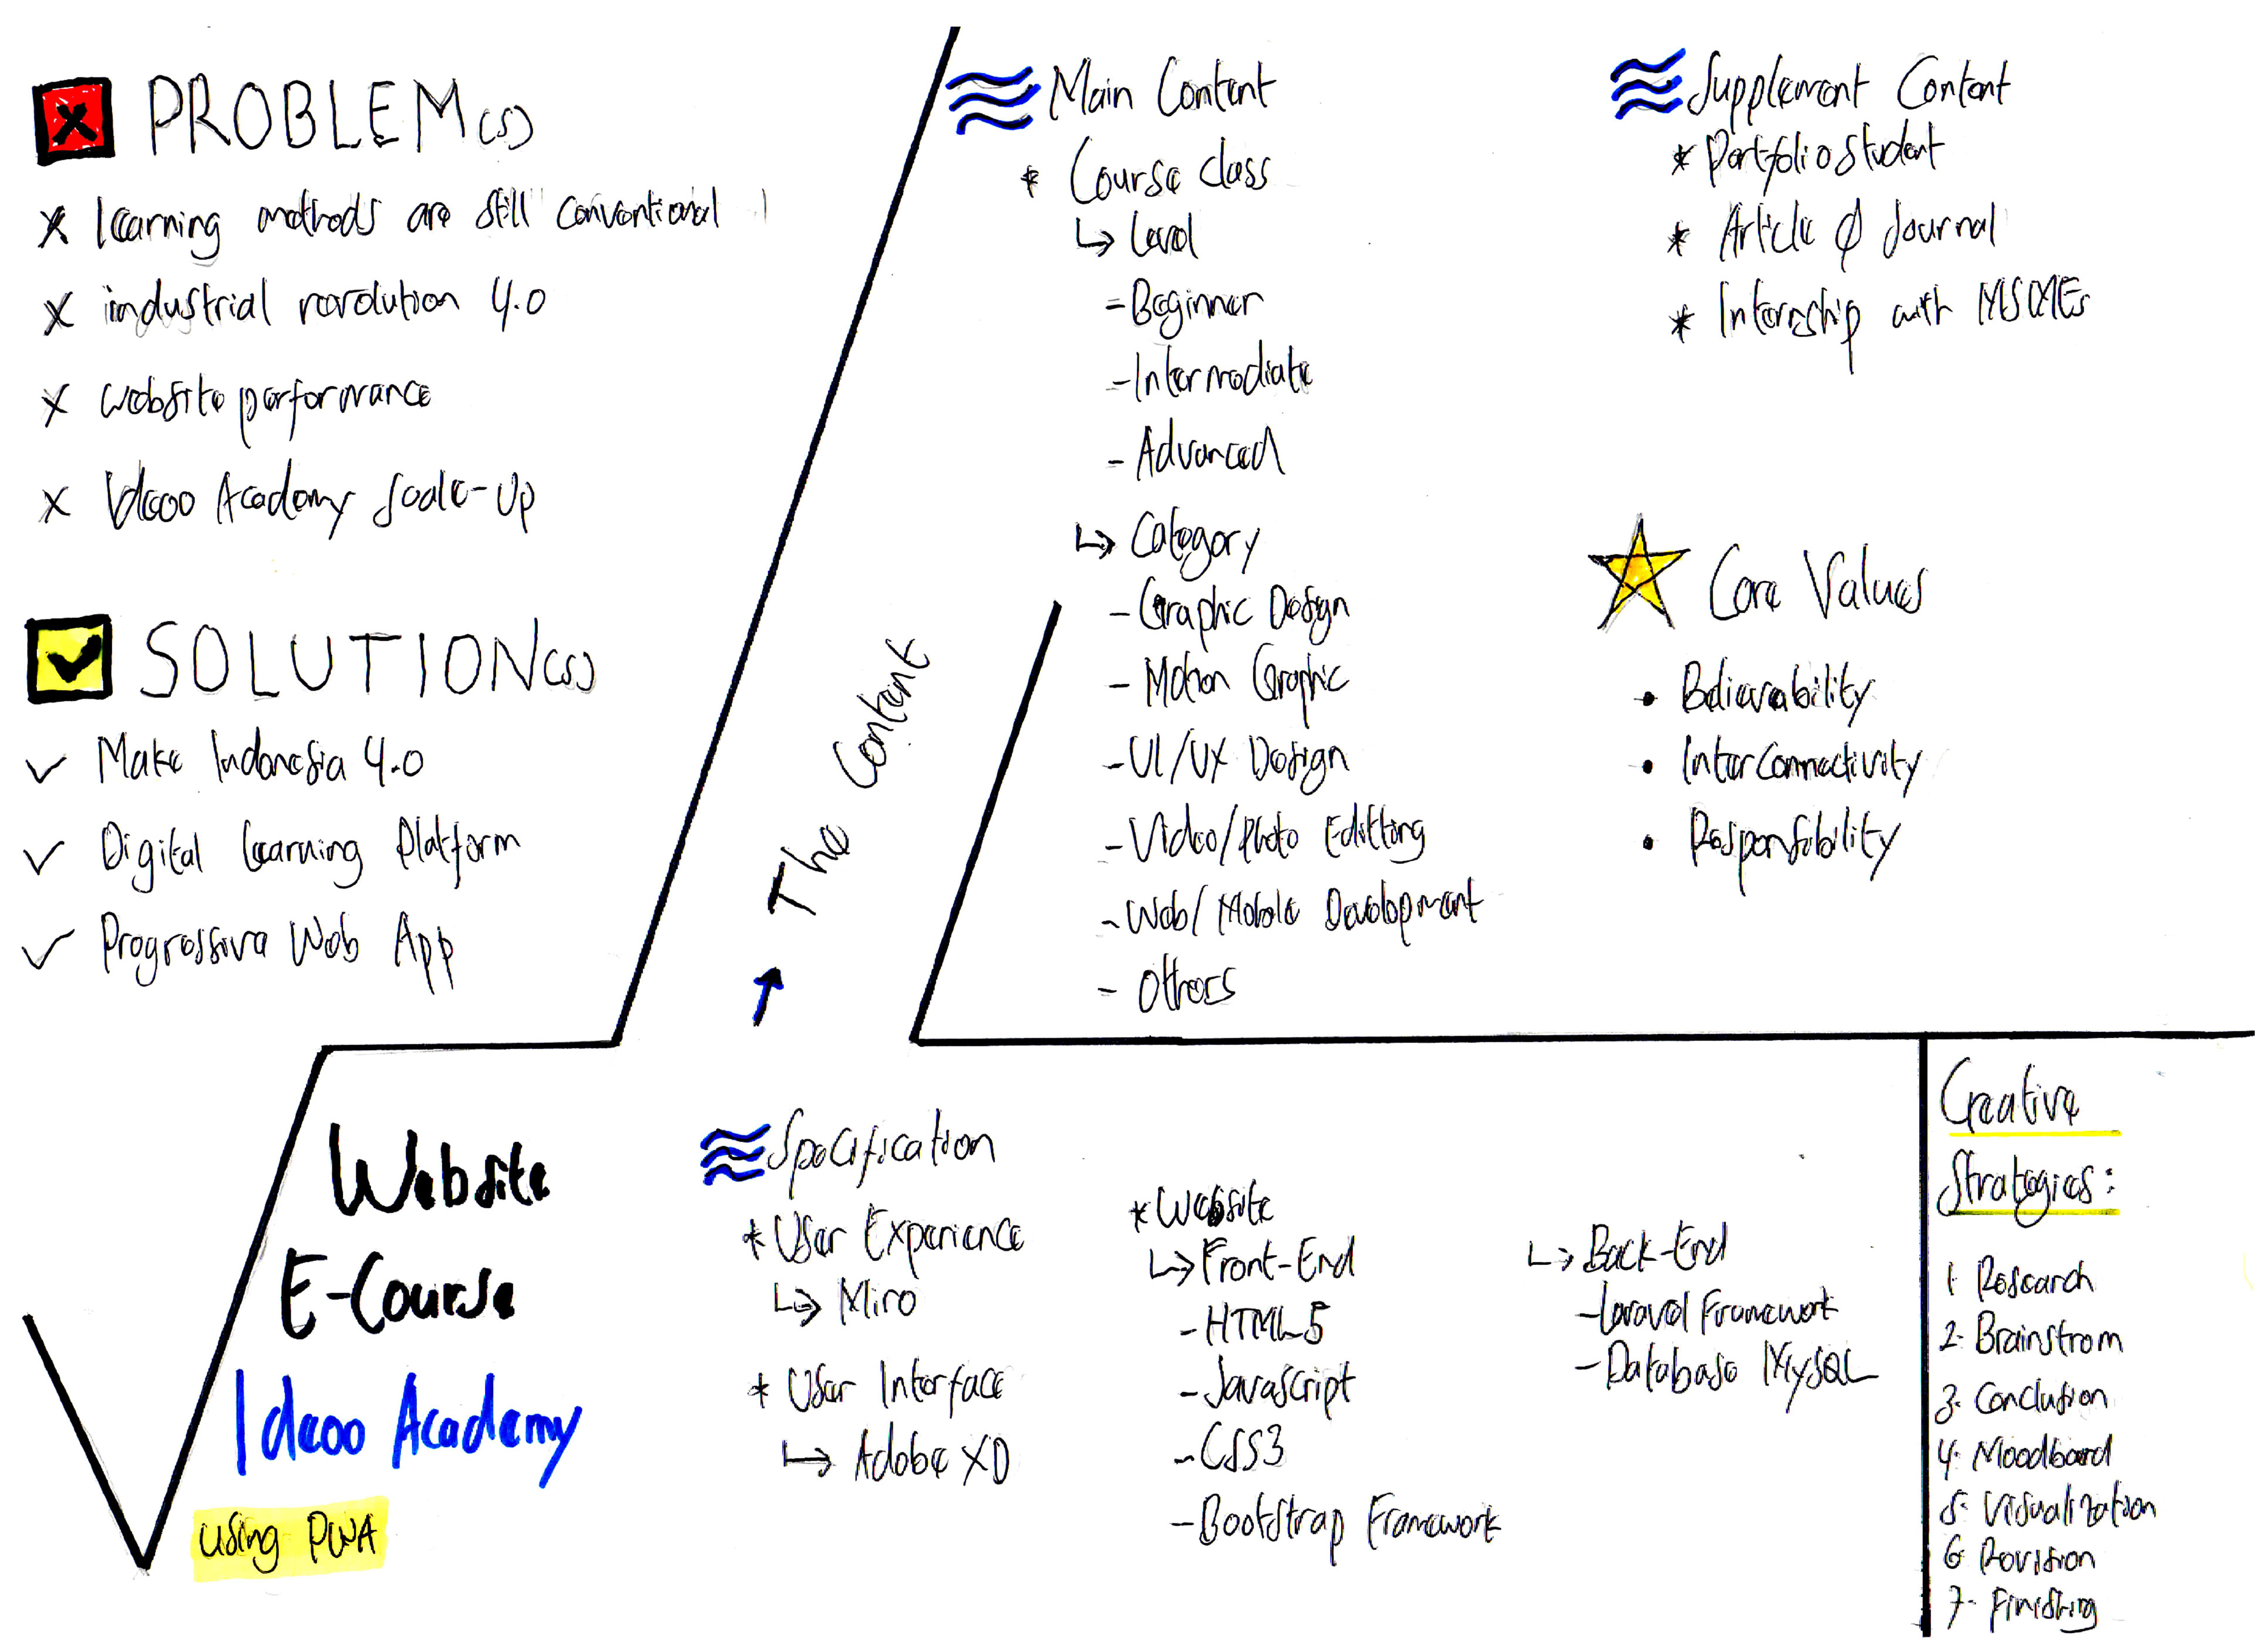 PROBLEM(S)
x learning methods are still conventional
x industrial revolution 4.0
x website performance
x Ideoo Academy Scale-Up
SOLUTION(S)
✓ Make Indonesia 4.0
✓ Digital Learning Platform
✓ Progressive Web App
The Content
Main Content
* Course class
↳ Level
- Beginner
- Intermediate
- Advanced
↳ Category
- Graphic Design
- Motion Graphic
- UI/UX Design
- Video/Photo Editting
- Web/Mobile Development
- Others
Supplement Content
* Portfolio Student
* Article & Journal
* Internship with MSMEs
Core Values
• Believability
• Interconnectivity
• Responsibility
Website
E-Course
Ideoo Academy
using PWA
Specification
* User Experience
↳ Miro
* User Interface
↳ Adobe XD
* Website
↳ Front-End
- HTML5
- Javascript
- CSS3
- Bootstrap Framework
↳ Back-End
- Laravel Framework
- Database MySQL
Creative
Strategies:
1. Research
2. Brainstrom
3. Conclusion
4. Moodboard
5. Visualization
6. Revision
7. Finishing